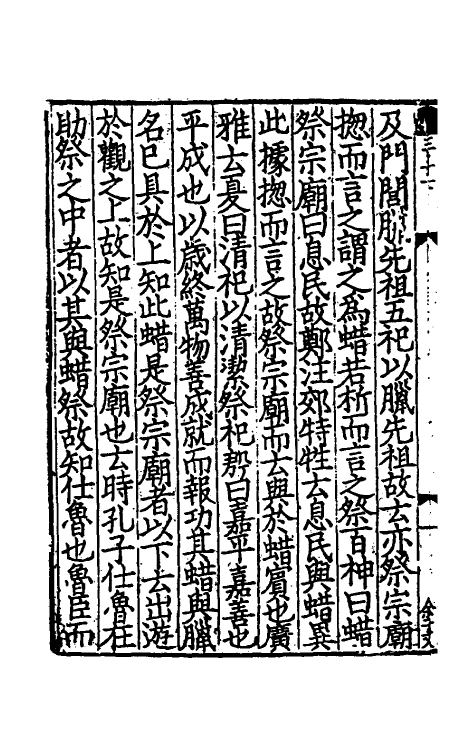 及門閭臘先祖五祀以臘先祖故云亦祭宗廟
揔而言之謂之為蜡若析而言之祭百神曰蜡
祭宗廟曰息民故鄭注郊特牲云息民與蜡異
此據揔而言之故祭宗廟而云與於蜡賔也廣
雅云夏曰清祀以清潔祭祀殷曰嘉平嘉善也
平成也以歳終萬物善成就而報功其蜡與臘
名已具於上知此蜡是祭宗廟者以下云出遊
於觀之上故知是祭宗廟也云時孔子仕魯在
助祭之中者以其與蜡祭故知仕魯也魯臣而
三十一